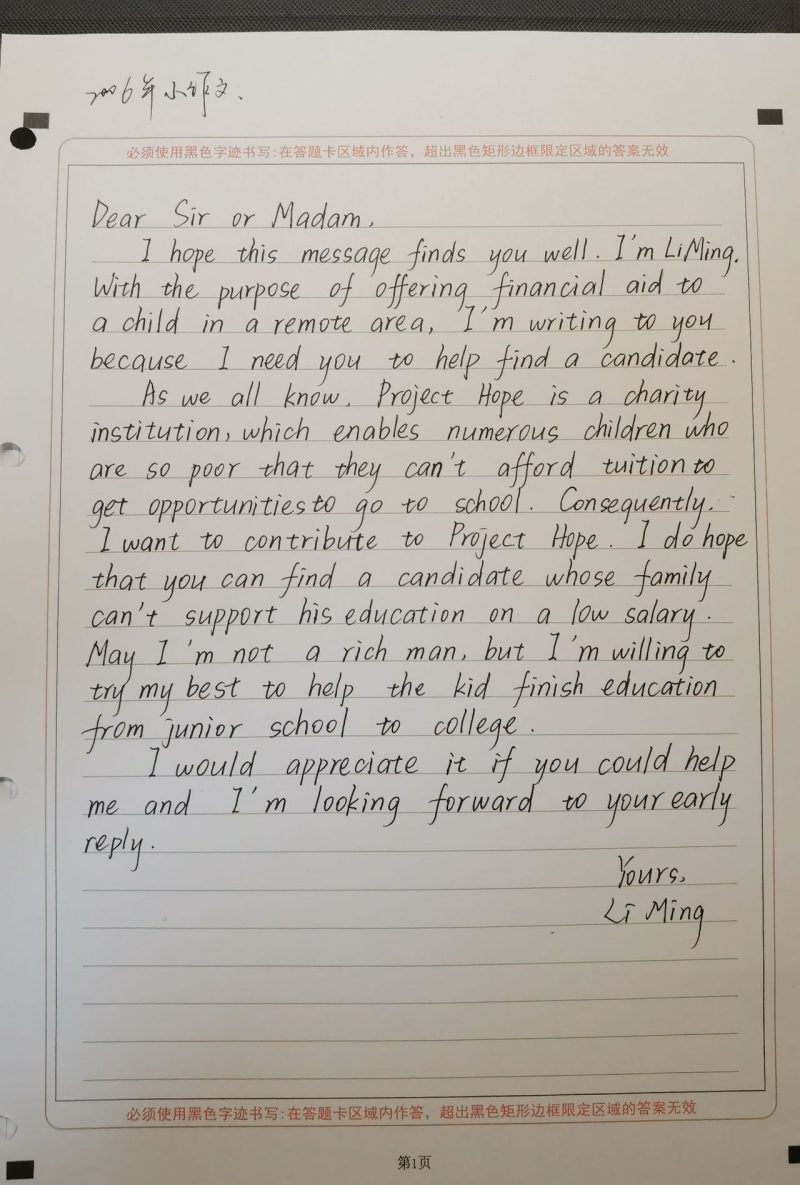 2006年小作文.
必须使用黑色字迹书写:在答题卡区域内作答，超出黑色矩形边框限定区域的答案无效
Dear Sir or Madam,
I hope this message finds you well. I'm Li Ming.
With the purpose of offering financial aid to
a child in a remote area, I'm writing to you
because I need you to help find a candidate.
As we all know, Project Hope is a charity
institution, which enables numerous children who
are so poor that they can't afford tuition to
get opportunities to go to school. Consequently,
I want to contribute to Project Hope. I do hope
that you can find a candidate whose family
can't support his education on a low salary.
May I'm not a rich man, but I'm willing to
try my best to help the kid finish education
from junior school to college.
I would appreciate it if you could help
me and I'm looking forward to your early
reply.
Yours,
Li Ming
必须使用黑色字迹书写:在答题卡区域内作答，超出黑色矩形边框限定区域的答案无效
第1页